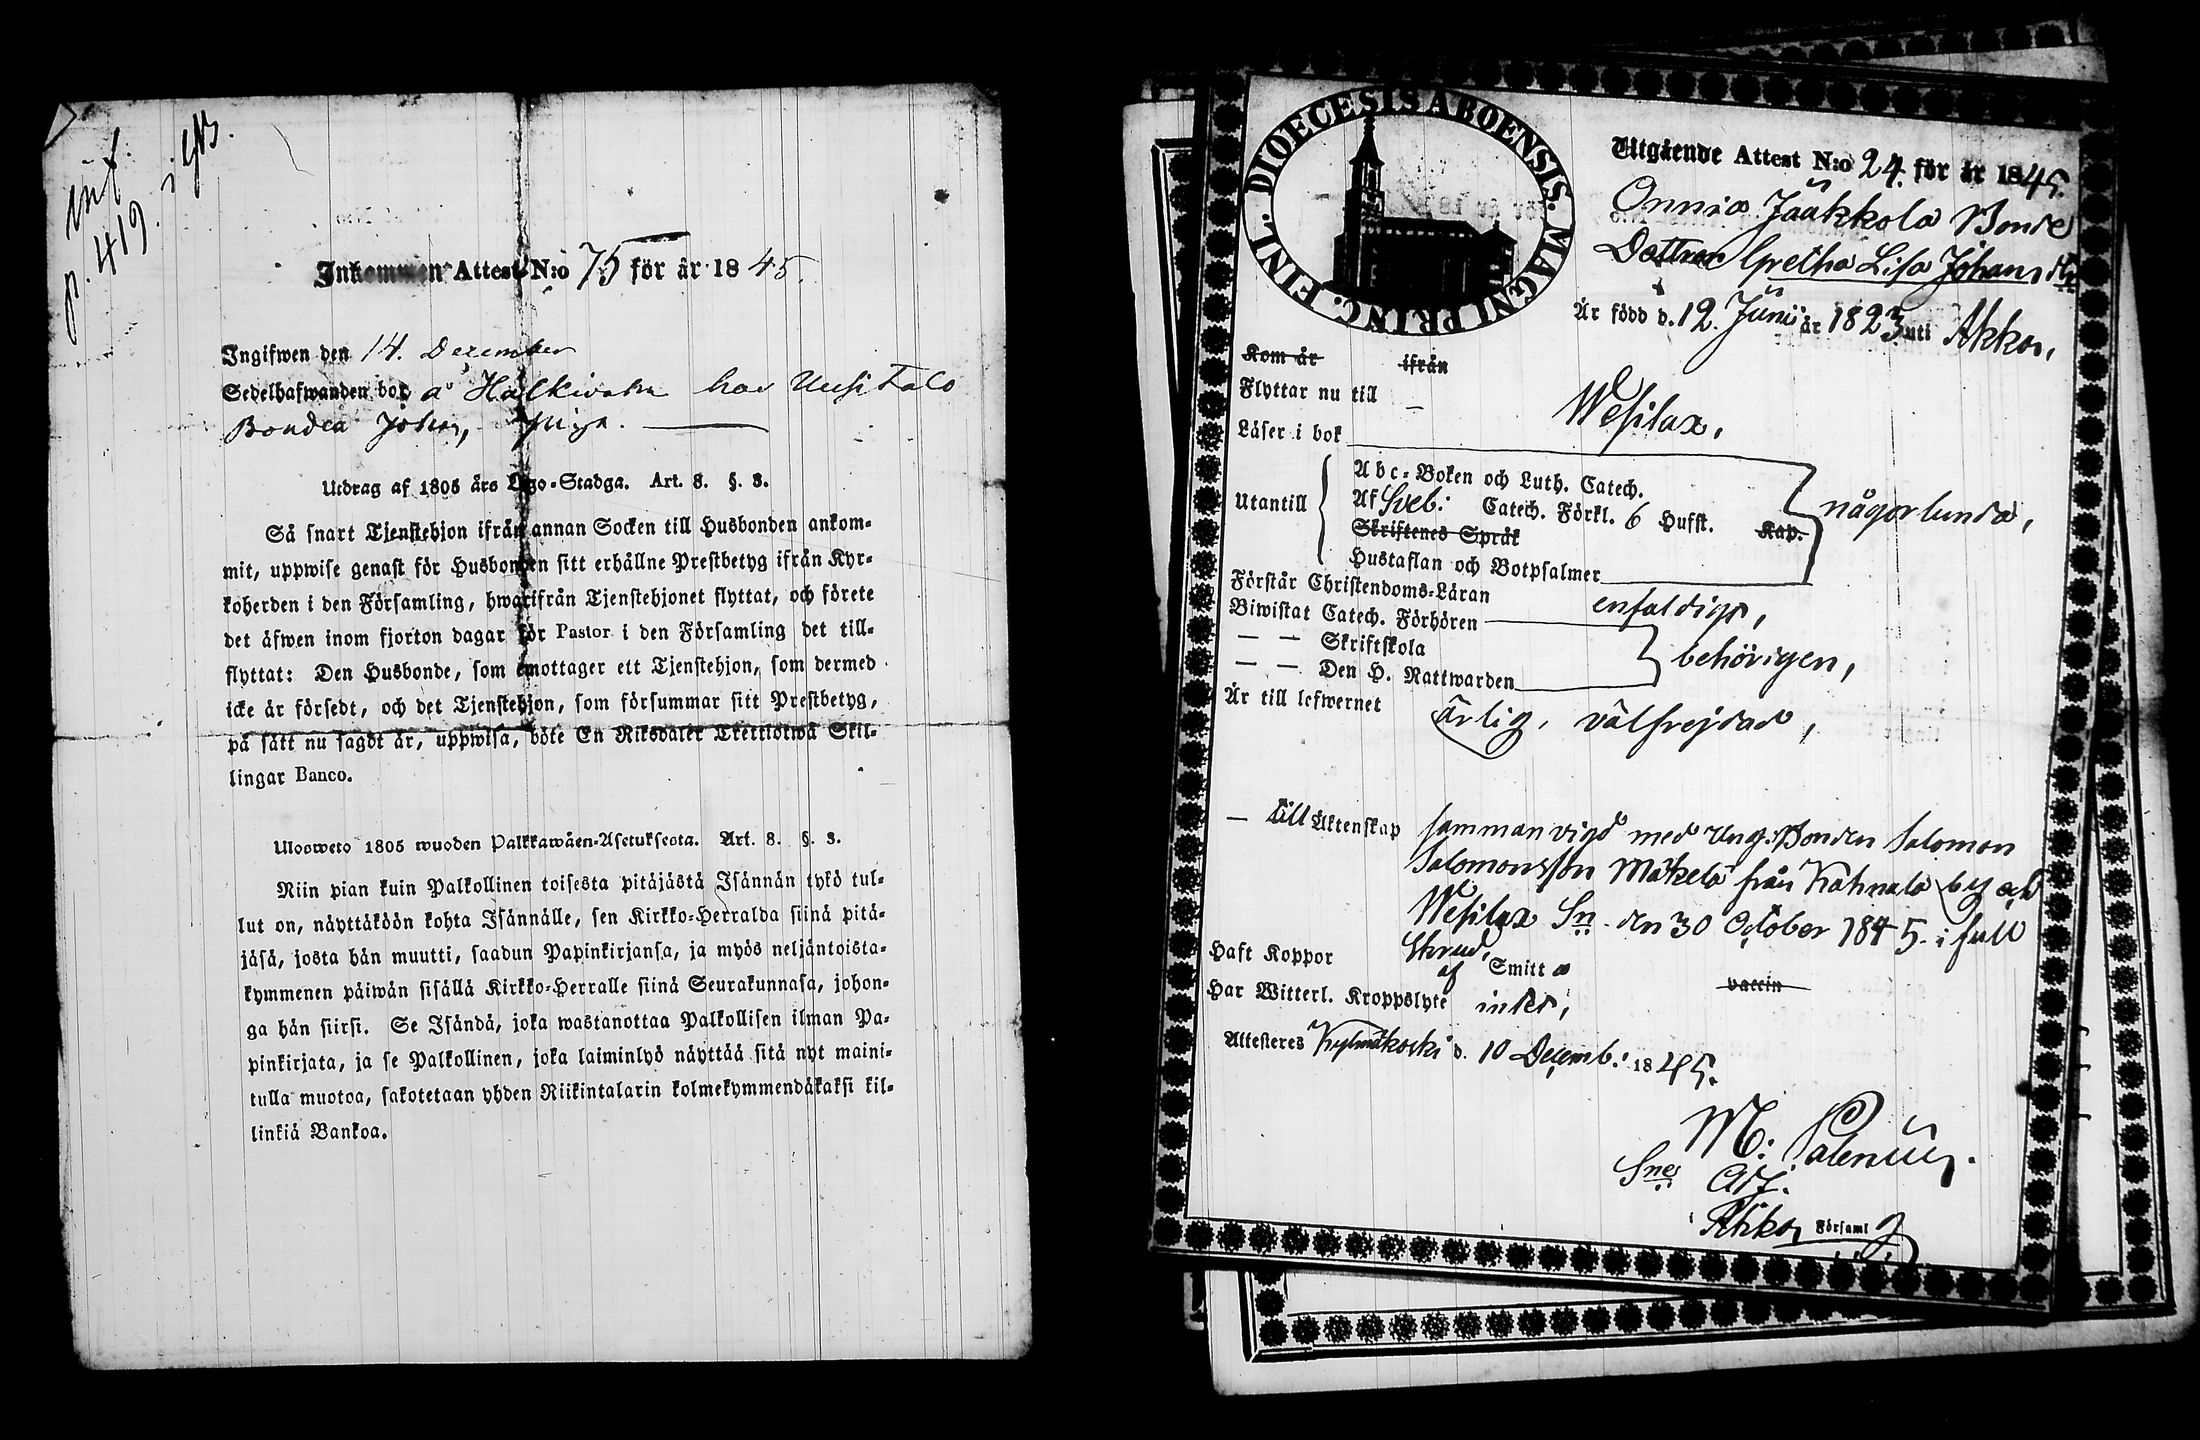 inf.
p. 419. i
Inkommen Attest N:o 75 för år 1845.
Ingifwen den 14. December
Sedelhafwanden bor å Halkivaha hos Uusitalo
Bonden Johan, piga.
Utdrag af 1805 års Lego-Stadga. Art. 8. §. 3.
Så snart Tjenstehjon ifrån annan Socken till Husbonden ankom-
mit, uppwise genast för Husbonden sitt erhållne Prestbetyg ifrån Kyr-
koherden i den Församling, hwarifrån Tjenstehjonet flyttat, och förete
det äfwen inom fjorton dagar för Pastor i den Församling det till-
flyttat: Den Husbonde, som emottager ett Tjenstehjon, som dermed
icke är försedt, och det Tjenstehjon, som försummar sitt Prestbetyg,
på sätt nu sagdt är, uppwisa, böte En Riksdaler Trettiotwå Skil-
lingar Banco.
Ulosweto 1805 wuoden Palkkawäen-Asetuksesta. Art. 8. §. 3.
Niin pian kuin Palkollinen toisesta pitäjästä Isännän tykö tul-
lut on, näyttäköön kohta Isännälle, sen Kirkko-Herralda siinä pitä-
jäsä, josta hän muutti, saadun Papinkirjansa, ja myös neljäntoista-
kymmenen päiwän sisällä Kirkko-Herralle siinä Seurakunnasa, johon-
ga hän siirsi. Se Isändä, joka wastanottaa Palkollisen ilman Pa-
pinkirjata, ja se Palkollinen, joka laiminlyö näyttää sitä nyt maini-
tulla muotoa, sakotetaan yhden Riikintalarin kolmekymmendäkaksi kil-
linkiä Bankoa.
DIOECESIS ABOENSIS. MAGNI PRINC. FINL.
Utgående Attest N:o 24. för år 1845.
Onnia Jaakkola Bonde
Dottren Gretha Lisa Johansdr
Är född d. 12. Junii år 1823 uti Akkas,
Kom år ifrån
Flyttar nu till Wesilax,
Läser i bok
Utantill
Abc-Boken och Luth. Catech.
Af Sveb: Catech. Förkl. 6 Hufst. Kap.
Skriftenes Språk
Hustaflan och Botpsalmer
någorlunda,
Förstår Christendoms-Läran enfaldigt,
Biwistat Catech. Förhören
— — Skriftskola
— — Den H. Nattwarden
behörigen,
Är till lefwernet ärlig, välfrejdad,
— till Äktenskap sammanvigd med Ung. Bonden Salomon
Salomonsson Mäkelä från Kahnala by och
Wesilax Sn. den 30 October 1845. i full
Skrud,
Haft Koppor af Smitta vaccin
Har Witterl. Kroppslyte intet,
Attesteres Kylmäkoski d. 10 Decemb: 1845.
M: Palenius.
Adj.
i Akkas Församlg